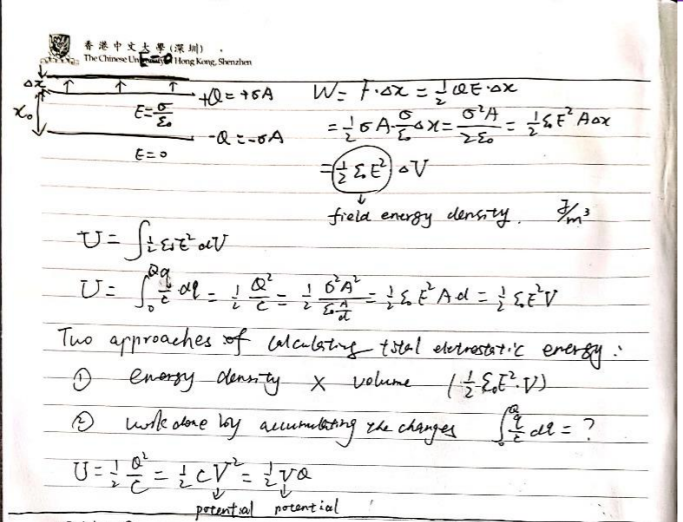 香港中文大學(深圳)
The Chinese University of Hong Kong, Shenzhen
E=0
Δx
x₀
+Q=+σA
E=σ/ε₀
-Q=-σA
E=0
W= F·Δx = 1/2 QE·Δx
= 1/2 σA·σ/ε₀ Δx = σ²A/2ε₀ = 1/2 ε₀E²AΔx
= 1/2 ε₀E² ΔV
field energy density. J/m³
U= ∫ 1/2 ε₀E² dV
U= ∫₀^Q q/c dq = 1/2 Q²/C = 1/2 σ²A²/(ε₀ A/d) = 1/2 ε₀E²Ad = 1/2 ε₀E²V
Two approaches of calculating total eletrostatic energy:
① energy density × volume (1/2 ε₀E²·V)
② work done by accumulating the charges ∫₀^Q q/c dq = ?
U= 1/2 Q²/C = 1/2 CV² = 1/2 VQ
potential potential